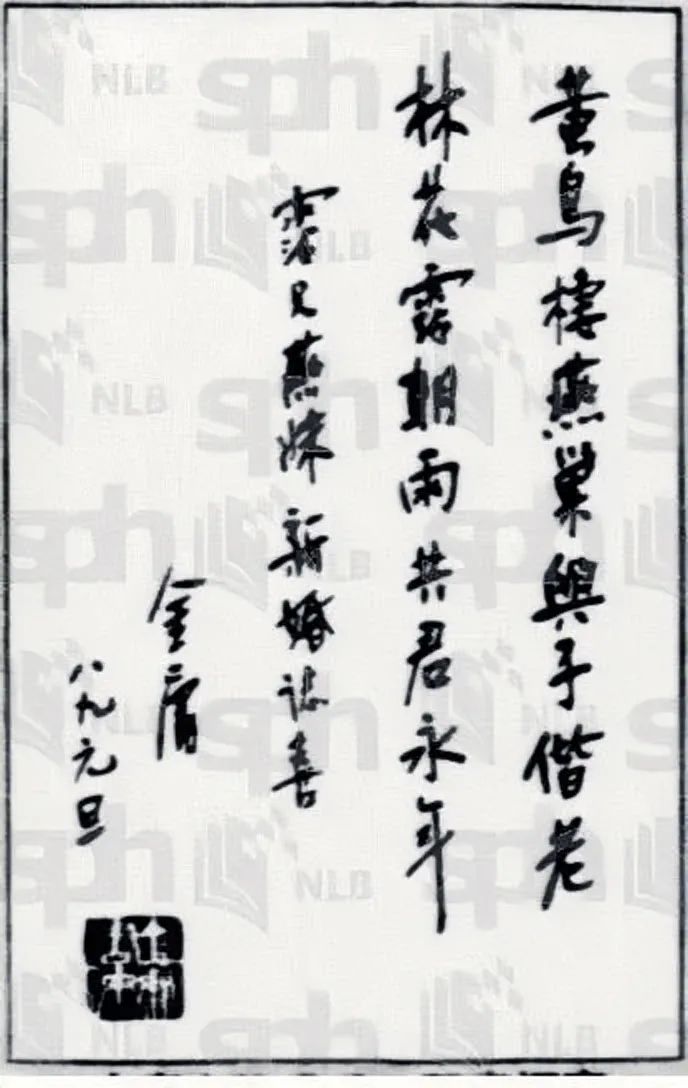 黃鳥棲燕巢與子偕老
林花霑朝雨共君永年
霑兄燕妹新婚誌喜
金庸
八九元旦
NLB
sph